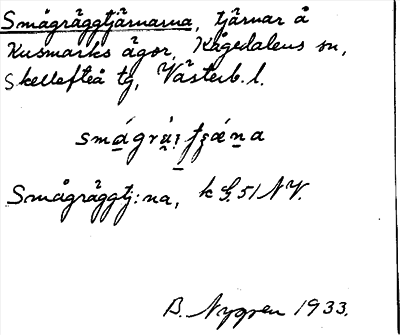 Smågräggtjärnarna, tjärnar å
Kusmarks ägor, Kågedalens sn,
Skellefteå tg, Västerb. l.
Smågräggtj:na, k S. 51 NV.
B. Nygren 1933.